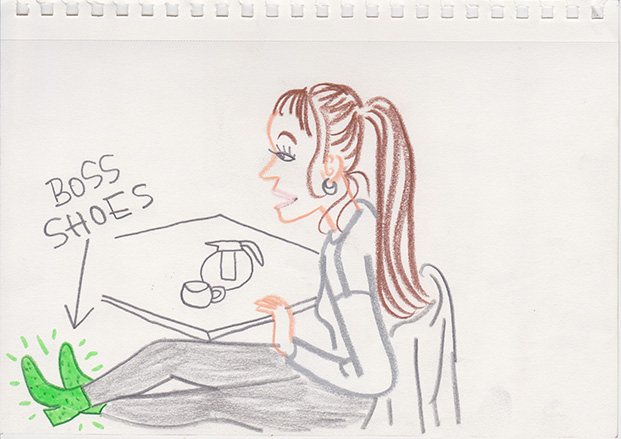 BOSS
SHOES